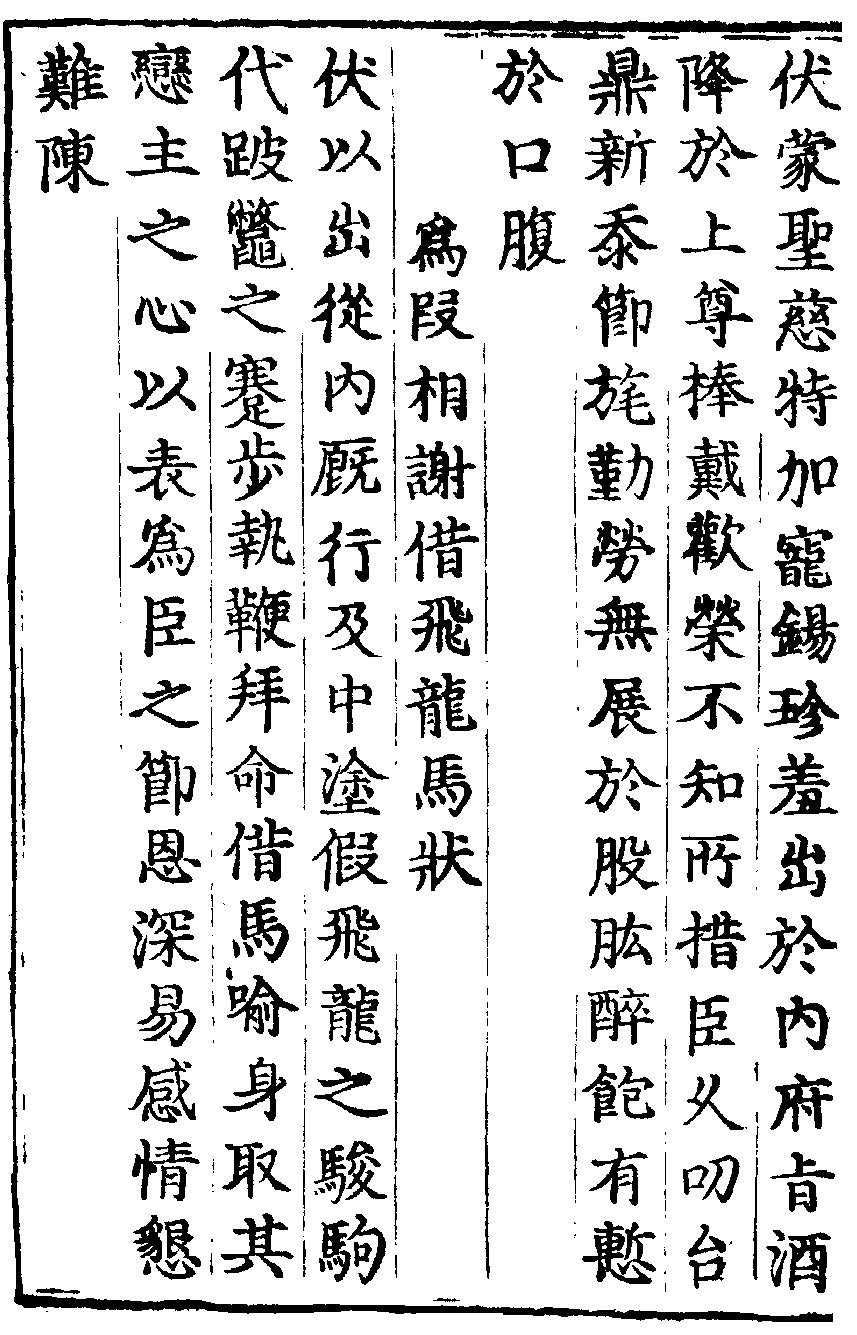 伏蒙聖慈特加寵錫珍羞出於内府旨酒
降於上尊捧戴歡榮不知所措臣久叨台
鼎新忝節旄勤勞無展於股肱醉飽有慙
於口腹
爲段相謝借飛龍馬狀
伏以出從内厩行及中塗假飛龍之駿駒
代跛鼈之蹇步執鞭拜命借馬喻身取其
戀主之心以表爲臣之節恩深易感情懇
難陳